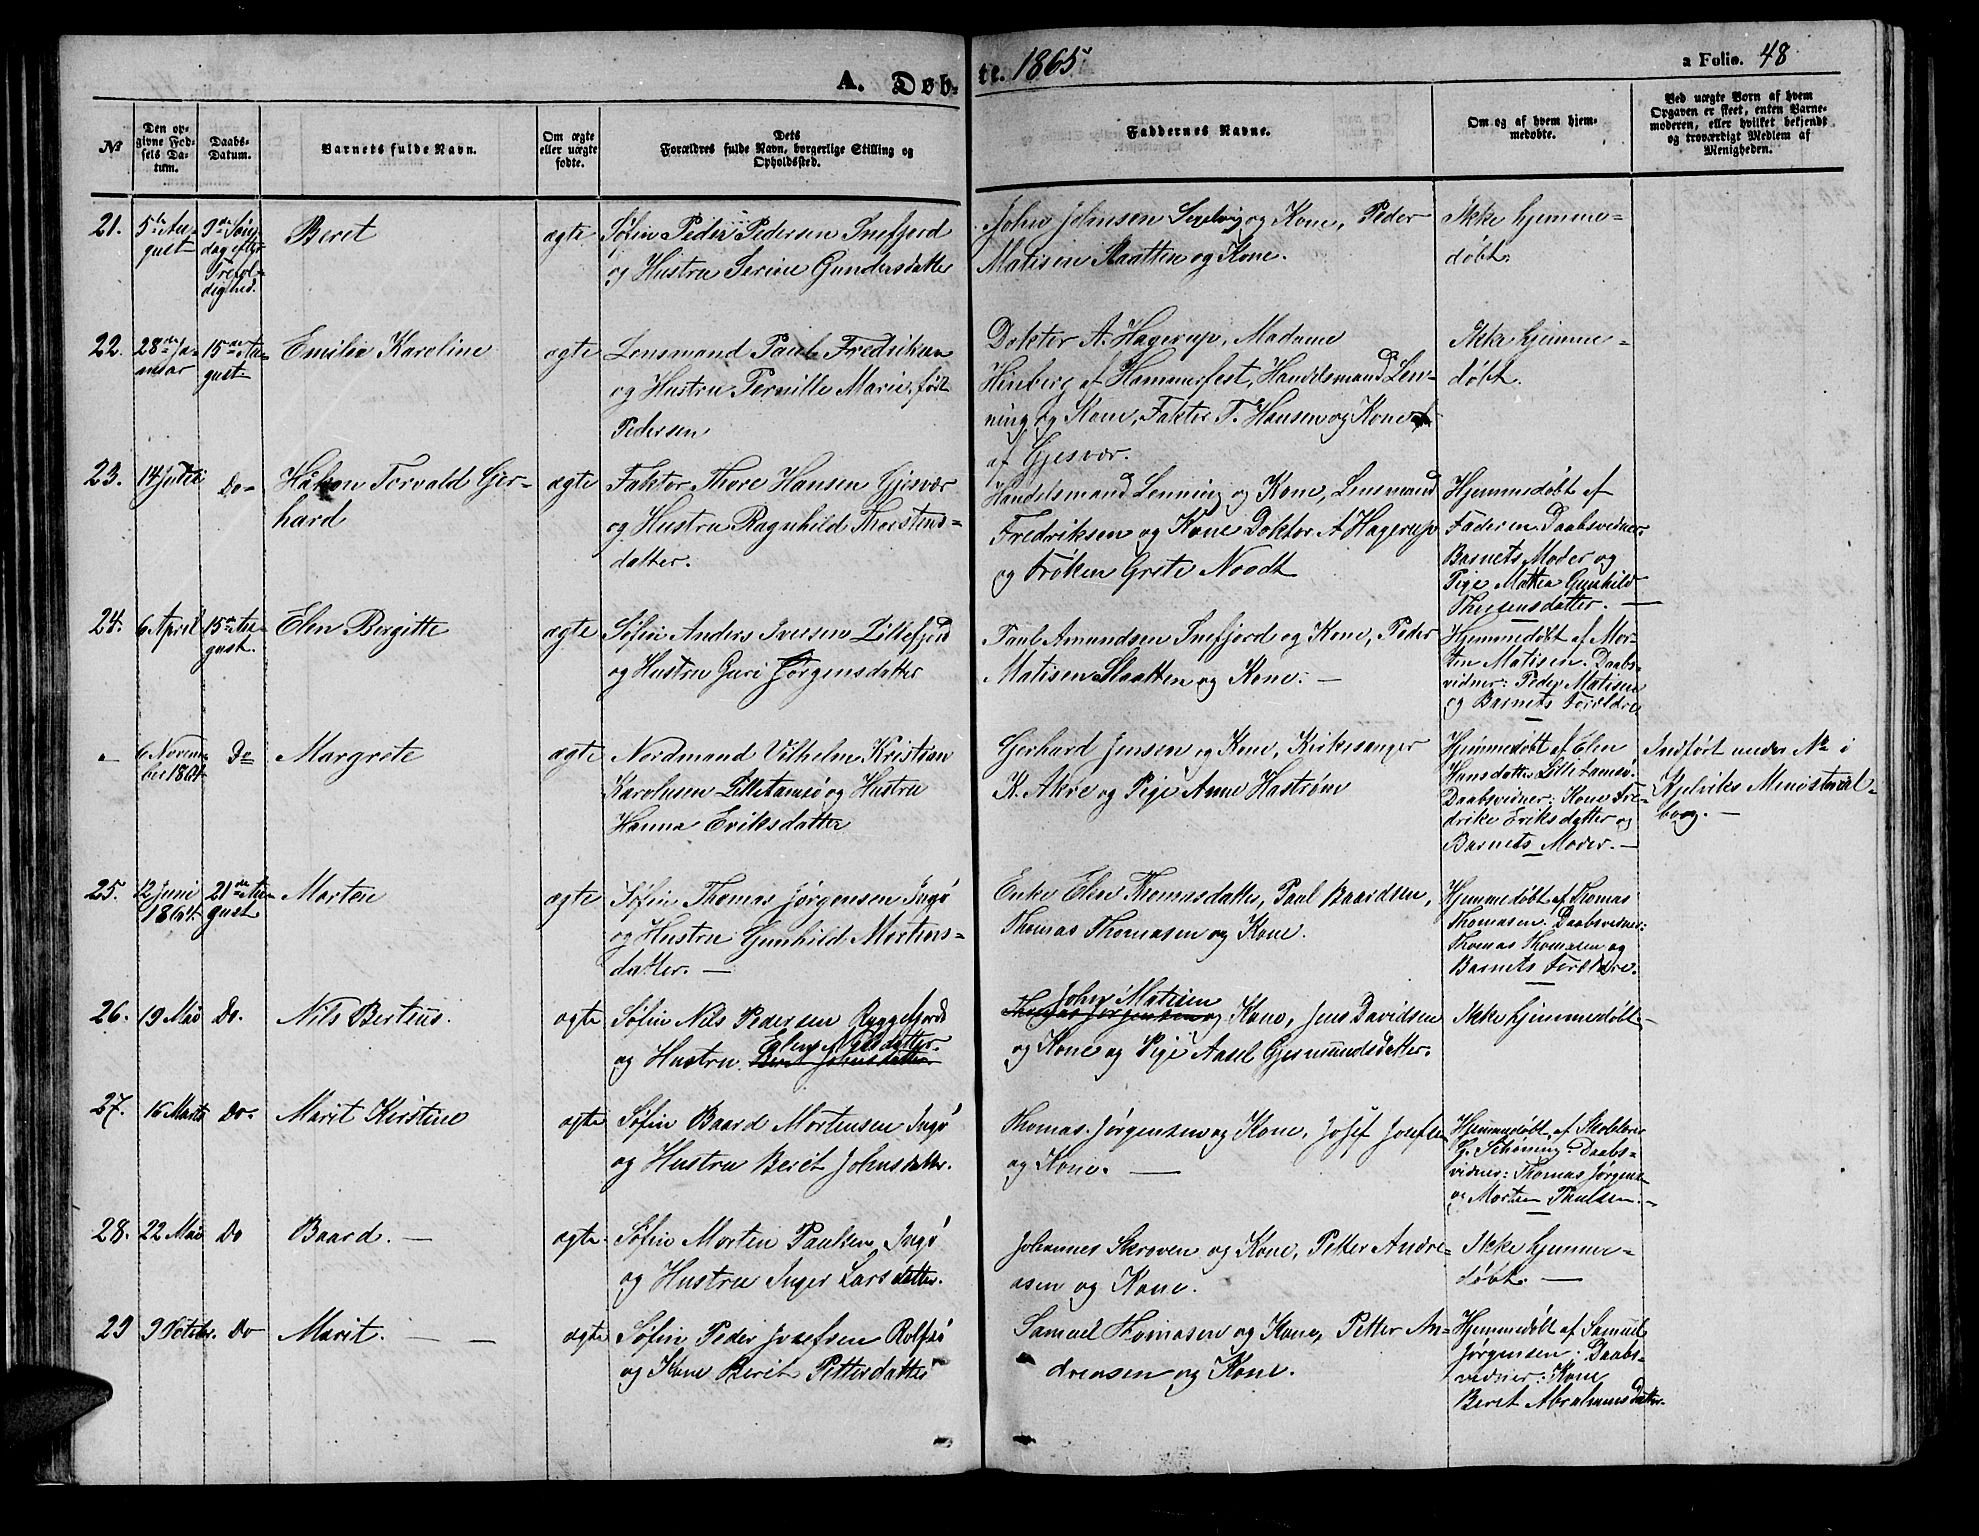 A. Døb-
te. 1865
a Folio. 48
No
Den op-
givne Fød-
sels Da-
tum.
Daabs-
Datum.
Barnets fulde Navn.
Om ægte
eller uægte
fødte.
Dets
Forældres fulde Navn, borgerlige Stilling og
Opholdssted.
Faddernes Navne.
Om og af hvem hjem-
medøbte.
Ved uægte Børn af hvem
Opgaven er skeet, enten Barne-
moderen, eller hvilket bekjendt
og troværdigt Medlem af
Menigheden.
21.
5te Au-
gust
9de Søn-
dag efter
Trefol-
dighed.
Beret
ægte
Søfin Peder Pedersen Snefjord
og Hustru Serine Gundersdatter
John Johnsen Selvig og Kone, Peder
Matisen Slaatten og Kone.
Ikke hjemme-
døbt.
22.
28de Ja-
nuar
15de Au-
gust
Emilie Karoline
ægte
Lensmand Paul Fredriksen
og Hustru Pernille Marie, født
Pedersen
Dokter A. Hagerup, Madame
Hinberg af Hammerfest, Handelsmand Len-
ning og Kone, Faktor T. Hansen og Kone
af Gjesvær.
Ikke hjemme-
døbt.
23.
14 Juli
Do
Håkon Torvald Ger-
hard
ægte
Faktor Thore Hansen Gjesvær
og Hustru Ragnhild Thorstens-
datter.
Handelsmand Lenning og Kone, Lensmand
Fredriksen og Kone Doktor A Hagerup
og Frøken Grete Noodt
Hjemmedøbt af
Faderen. Daabsvidner
Barnets Moder og
Pige Mattea Gunhild
Thersensdatter. —
24.
6 April
15de Au-
gust.
Elen Birgitte
ægte
Søfin Anders Iversen Lillefjord
og Hustru Guri Jørgensdatter
Paul Amundsen Snefjord og Kone, Peder
Matisen Slaatten og Kone. —
Hjemmedøbt af Mor-
ten Matisen. Daabs-
vidner: Peder Matisen
og Barnets Foreldre
6 Novem-
ber 1864.
Do
Margrete
ægte
Nordmand Vilhelm Kristian
Karolusen Lilletamsø og Hustru
Hanna Eriksdatter
Gerhard Jensen og Kone, Kirkesanger
K. Akre og Pige Anne Hastrøm
Hjemmedøbt af Elen
Hansdatter Lilletamsø.
Daabsvidner: Kone Fre-
drike Eriksdatter og
Barnets Moder. —
Indført under No i
Kjelviks Ministerial-
bog. —
25.
12 Juni
1864
21de Au-
gust
Morten
ægte
Søfin Thomas Jørgensen Ingø
og Hustru Gunhild Mortens-
datter. —
Enke Elen Thomasdatter, Paul Baardsen,
Thomas Thomasen og Kone.
Hjemmedøbt af Thomas
Thomasen. Daabsvidner:
Thomas Thomasen og
Barnets Foreldre.
26.
19 Mai
Do.
Nils Bertius.
ægte
Søfin Nils Pedersen Ryggefjord
og Hustru Elen Nilsdatter.
Beret Johnsdatter
John Matisen
Thomas Jørgensen og Kone, Jens Davidsen
og Kone og Pige Aasel Gjermundsdatter.
Ikke hjemmedøbt. —
27.
16 Marts
Do.
Marit Kirstine
ægte
Søfin Baard Mortensen Ingø
og Hustru Beret Johnsdatter.
Thomas Jørgensen og Kone, Josef Josefsen
og Kone. —
Hjemmedøbt af Skolelærer
Schøning. Daabs-
vidner: Thomas Jørgens.
og Morten Paulsen. —
28.
22 Mai
Do
Baard. —
ægte.
Søfin Morten Paulsen Ingø
og Hustru Inger Larsdatter.
Johannes Skroven og Kone, Petter Andre-
asen og Kone.
Ikke hjemme-
døbt. —
29
9 Octobr.
Do
Marit. — —
ægte
Søfin Peder Josefsen Rolfsø
og Kone Beret Pettersdatter
Samuel Thomasen og Kone, Petter An-
dreasen og Kone.
Hjemmedøbt af Samuel
Jørgensen. Daabs-
vidner: Kone
Beret Abrahamsdatter.